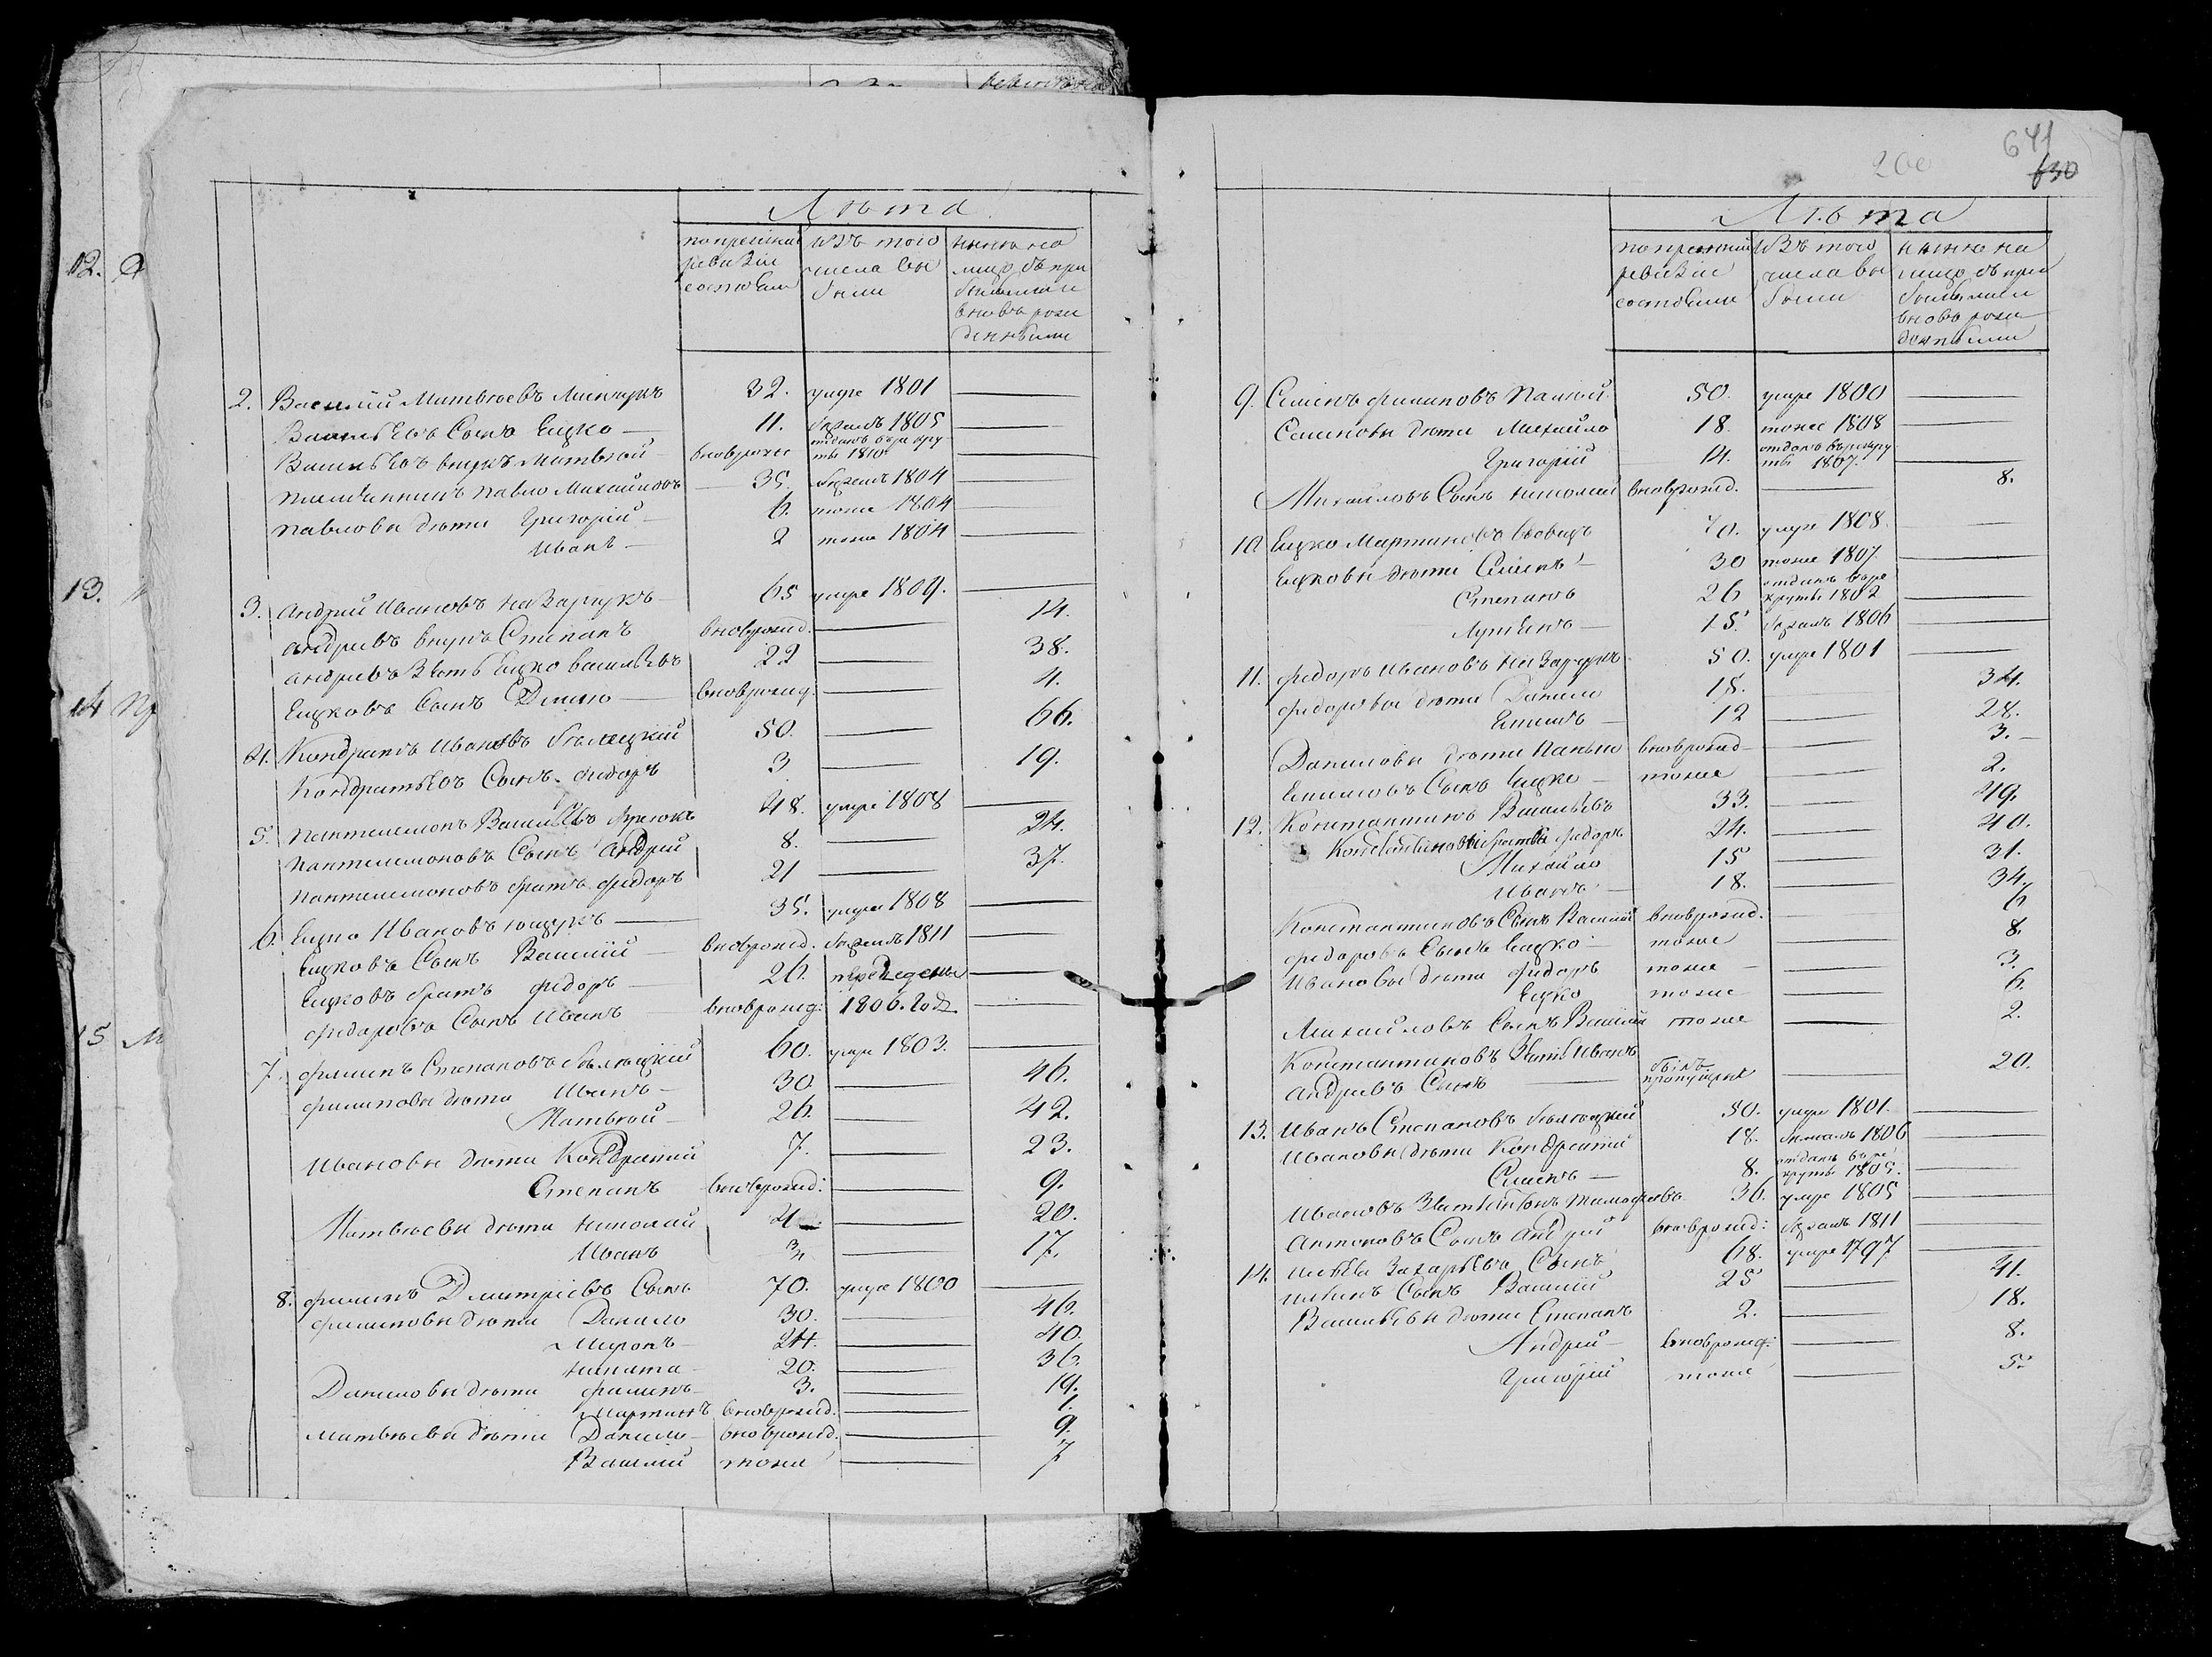 Лѣта
по прежней ревизіи состояли
изъ того числа выбыли
нынѣ на лицо съ прибылыми и вновь рожденными
2. Василій Матвѣевъ 32. умре 1801 —
Васильевъ Сынъ Ицко — 11. бѣжалъ 1805 —
Васильевъ внукъ Матвѣй — вноврожд отданъ въ рекруты 1810 —
Племянникъ Павло Михайловъ 35. бѣжалъ 1804 —
Павловы дѣти Григорій — 6. тоже 1804 —
Иванъ — 2 тоже 1804 —
3. Андрій Ивановъ Назарчукъ — 65 умре 1809. —
Андріевъ внукъ Степанъ вноврожд. — 14.
Андріевъ Зять Ицко Васильевъ 22 — 38.
Ицковъ Сынъ — вноврожд. — 4.
4. Кондратъ Ивановъ Бѣлецкий 50. — 66.
Кондратьевъ Сынъ Федоръ 3 — 19.
5. Пантелемонъ Васильевъ 48. умре 1808 —
Пантелемоновъ Сынъ Андрій 8. — 24.
Пантелемоновъ братъ Федоръ 21 — 37.
6. Ицко Ивановъ Ющукъ — 35. умре 1808 —
Ицковъ Сынъ Василій — вноврожд. бѣжалъ 1811 —
Ицковъ братъ Федоръ — 26. переведены —
Федоровъ Сынъ Иванъ вноврожд: 1806. году —
7. Филипъ Степановъ Бѣлецкій 60. умре 1803. —
Филиповы дѣти Иванъ — 30. — 46.
Матвѣй — 26. — 42.
Ивановы дѣти Кондратій 7. — 23.
Степанъ вноврожд: — 9.
Матвѣевы дѣти Николай 4 — 20.
Иванъ — 17.
8. Филипъ Дмитріевъ Сынъ 70. умре 1800 —
Филиповы дѣти Данило 30. — 46.
Миронъ — 24. — 40.
Никита — 20. — 36.
Даниловы дѣти Филипъ — 3. — 19.
Мартинъ вноврожд. — 1.
Матвѣевы дѣти Данило — вноврожд. — 9.
Василій тоже — 7
12.
13.
14
15
200
641
630
Лѣта
по прежней ревизіи состояли
изъ того числа выбыли
нынѣ на лицо съ прибылыми и вновь рожденными
9. Семенъ Филиповъ 50. умре 1800 —
Семеновы дѣти Михайло 18. тоже 1808 —
Григорій 14. отданъ въ рекруты 1807. —
Михайловъ Сынъ Николай вноврожд. — 8.
10. Ицко Мартиновъ 70. умре 1808. —
Ицковы дѣти Семенъ — 30 тоже 1807. —
Степанъ 26 отданъ въ рекруты 1802 —
Лукянъ — 15. бѣжалъ 1806 —
11. Федоръ Ивановъ Назарчукъ 50. умре 1801 —
Федоровы дѣти Данило 18. — 34.
— 12 — 28.
Даниловы дѣти вноврожд — 3. —
Сынъ Ицко — тоже — 2.
12. Константинъ Васильевъ 33. — 49.
Константиновы братья Федоръ 24. — 40.
Михайло 15 — 31.
Иванъ — 18. — 34.
Константиновъ Сынъ Василій вноврожд. — 6
Федоровъ Сынъ Ицко — тоже — 8.
Ивановы дѣти Федоръ тоже — 3.
Ицко тоже — 6.
Михайловъ Сынъ Василій тоже — 2.
Константиновъ Зять Иванъ
Андріевъ Сынъ — былъ пропущенъ — 20.
13. Иванъ Степановъ Бѣлецкий 50. умре 1801. —
Ивановы дѣти Кондратій 18. бѣжалъ 1806 —
Семенъ — 8. отданъ въ рекруты 1805. —
Ивановъ Зять Антонъ Тимофеевъ 36. умре 1805 —
Антоновъ Сынъ Андрій вноврожд: бѣжалъ 1811 —
14. Захарьевъ Сынъ 68. умре 1797. —
Сынъ Василій 25 — 41.
Васильевы дѣти Степанъ 2. — 18.
Андрей — вноврожд: — 8.
Григорій тоже — 5.